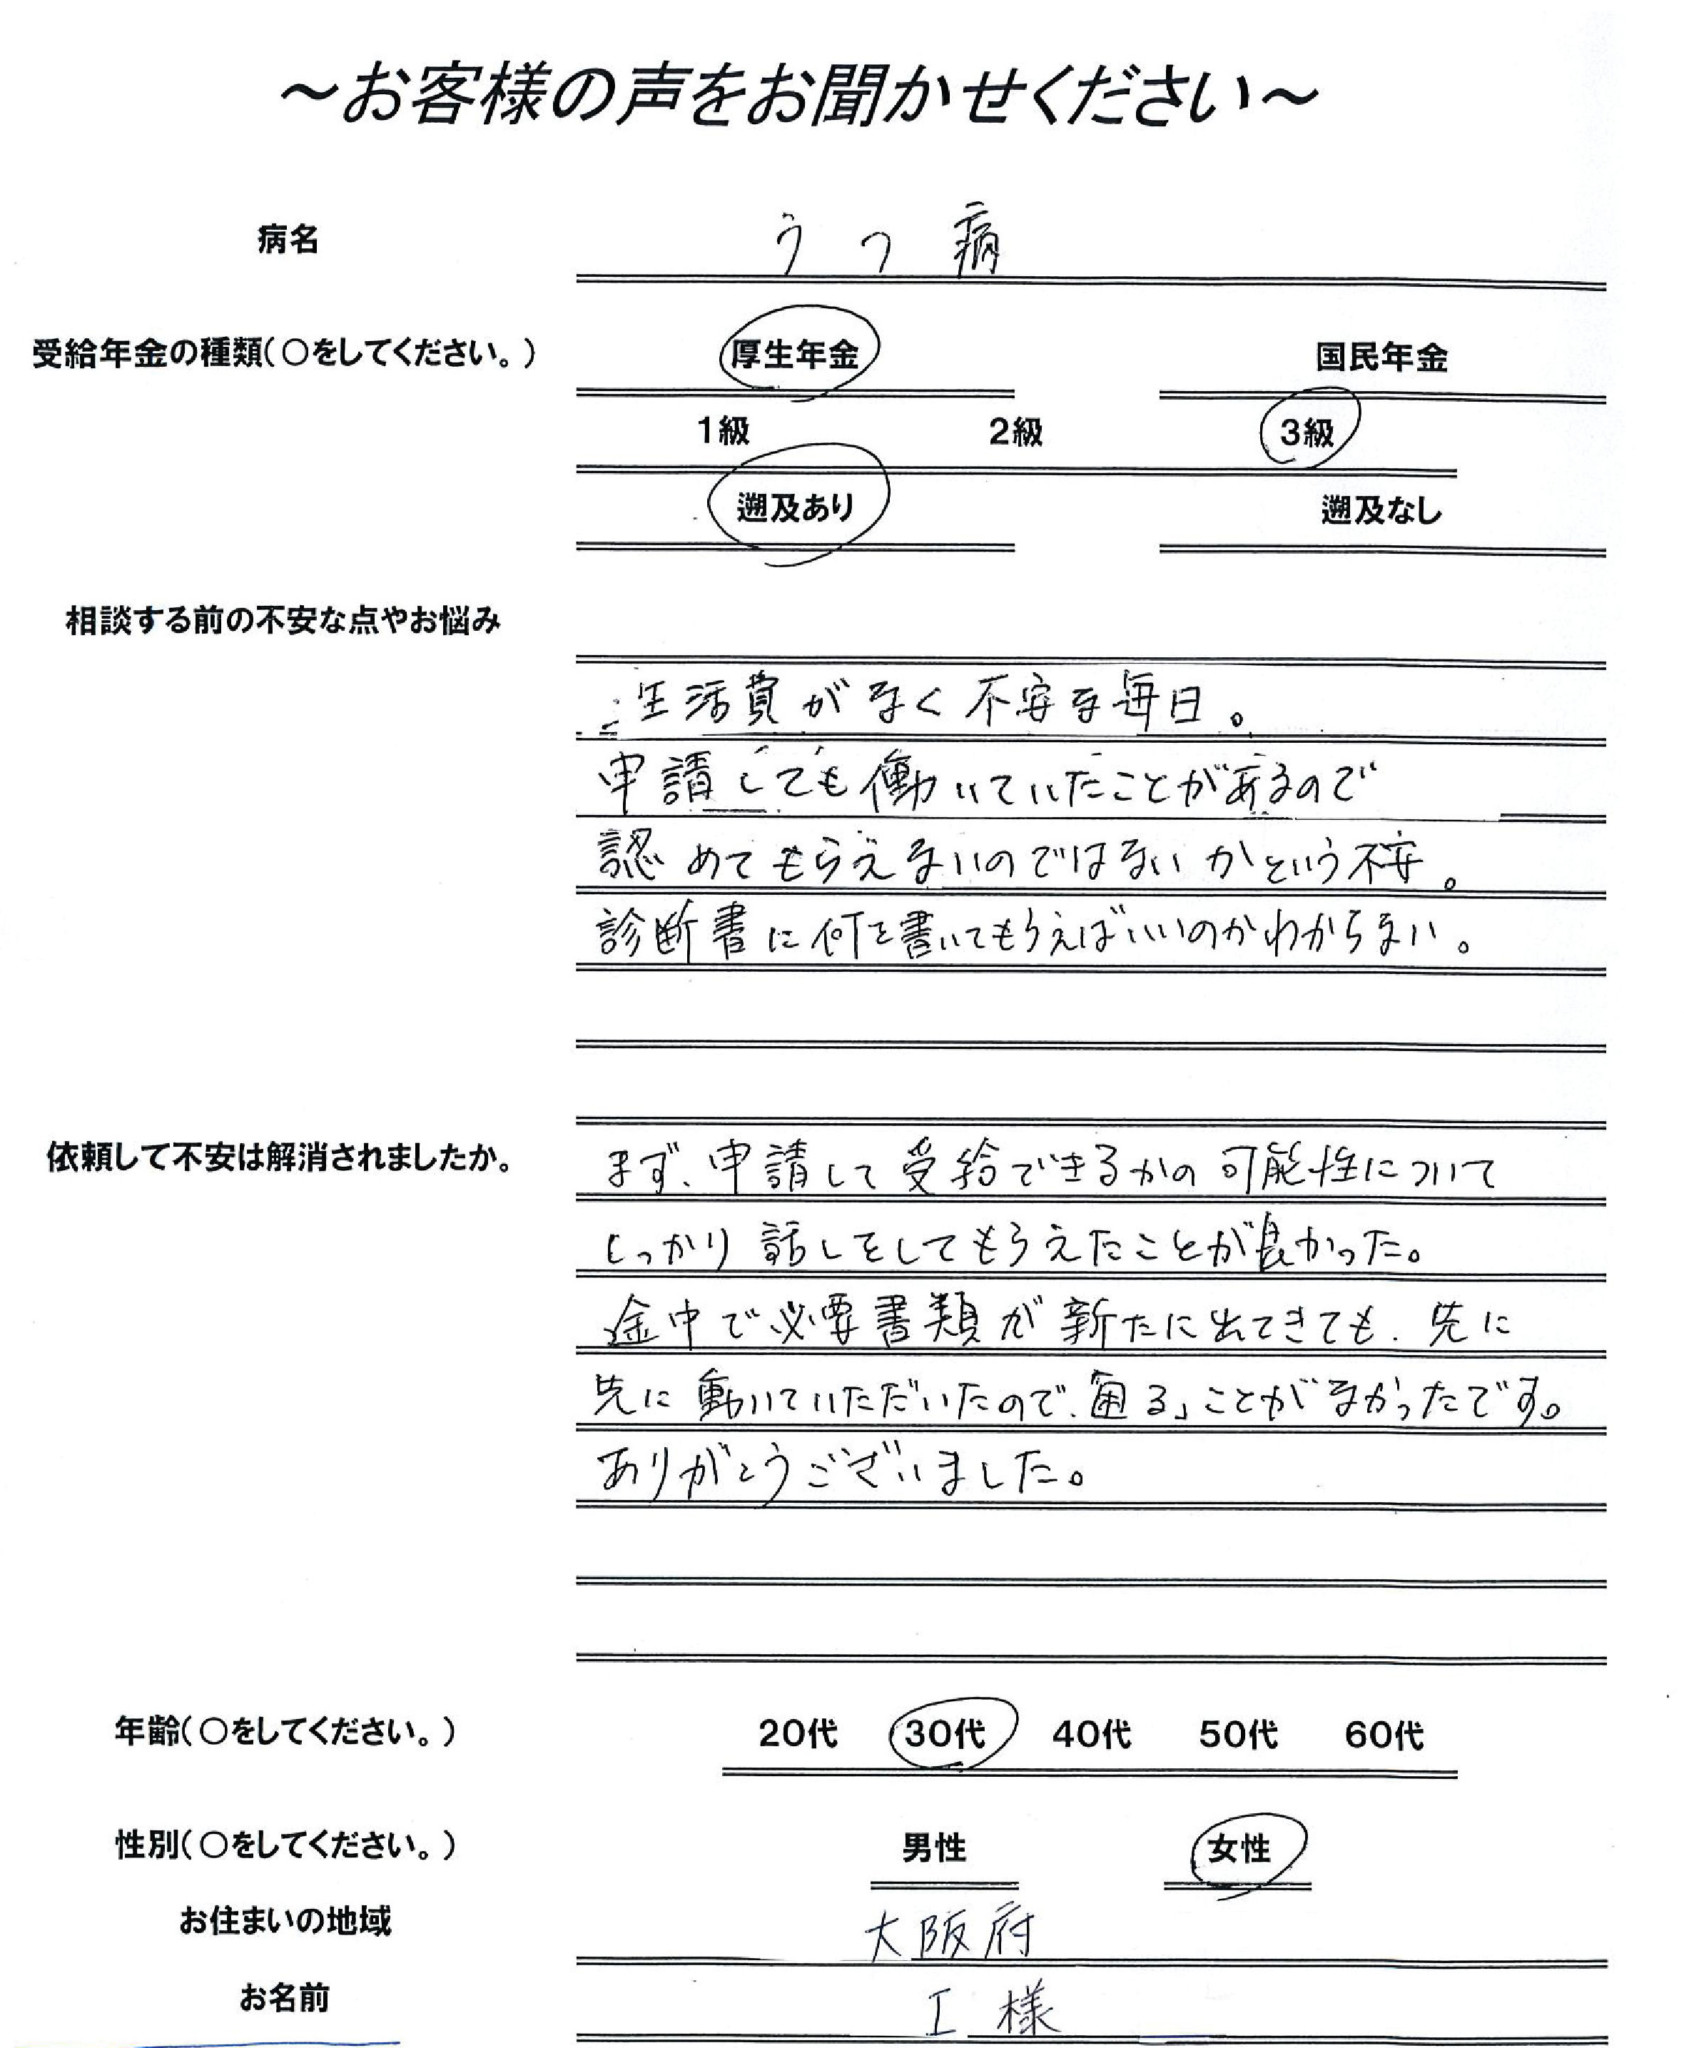 ～お客様の声をお聞かせください～
病名 うつ病
受給年金の種類(○をしてください。) 厚生年金 国民年金
1級 2級 3級
遡及あり 遡及なし
相談する前の不安な点やお悩み
生活費がなく不安な毎日。
申請しても働いていたことが有るので
認めてもらえないのではないかという不安。
診断書に何を書いてもらえばいいのかわからない。
依頼して不安は解消されましたか。 まず、申請して受給できるかの可能性について
しっかり話しをしてもらえたことが良かった。
途中で必要書類が新たに出てきても、先に
先に動いていただいたので、「困る」ことがなかったです。
ありがとうございました。
年齢(○をしてください。) 20代 30代 40代 50代 60代
性別(○をしてください。) 男性 女性
お住まいの地域 大阪府
お名前 I 様